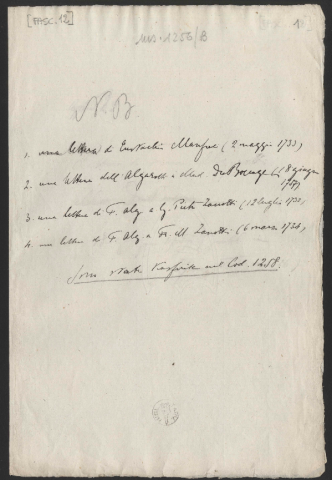 [FASC. 12]
1
MS. 1256/B
N.B
1. una lettera di Eustachi Manfredi (2 maggio 1733)
2. una lettera dell'Algarotti a Mad. Du Bocage (18 giugno
1757)
3. una lettera di F. Alg. a G. Pietro Zanotti (12 luglio 1732)
4. una lettera di F. Alg. a Fr. M. Zanotti (6 marzo 1726)
Sono state trasferite nel Cod. 1258.